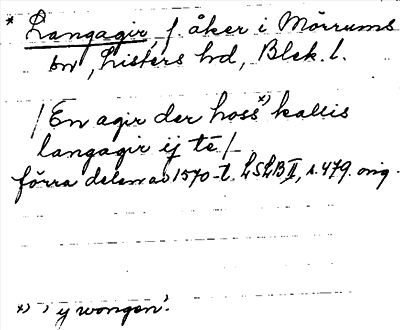 * Langagir, f. åker i Mörrums
sn, Listers hd, Blek. l.
/En agir der hoss x) kallis
langagir ij tē/
förra delen av 1570-t. LSLB II, s. 479. orig.
x) ' ij wongen'.